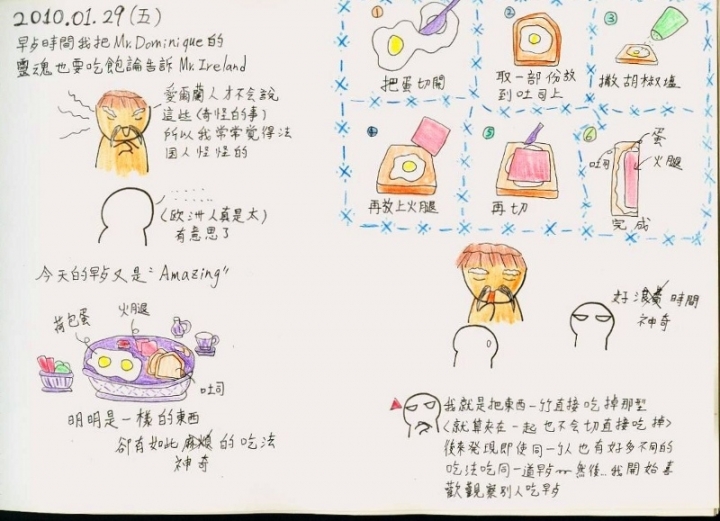 2010.01.29(五)
早占時間我把Mr.Dominique的
靈魂也要吃飽論告訴Mr.Ireland
愛爾蘭人才不會說
這些(奇怪的事)
所以我常常覺得法
国人怪怪的
(欧洲人真是太)
有意思了
今天的早占又是"Amazing"
荷包蛋
火腿
吐司
明明是一樣的東西
卻有如此麻煩的吃法
神奇
①
把蛋切開
②
取一部份放
到吐司上
③
撒胡椒塩
④
再放上火腿
⑤
再切
⑥
蛋
吐司
火腿
完成
好浪費時間
神奇
我就是把東西一竹直接吃掉那型
(就算夾在一起也不会切直接吃掉)
後來發現即使同一个人也有好多不同的
吃法吃同一道早占~然後...我開始喜
歡觀察別人吃早占